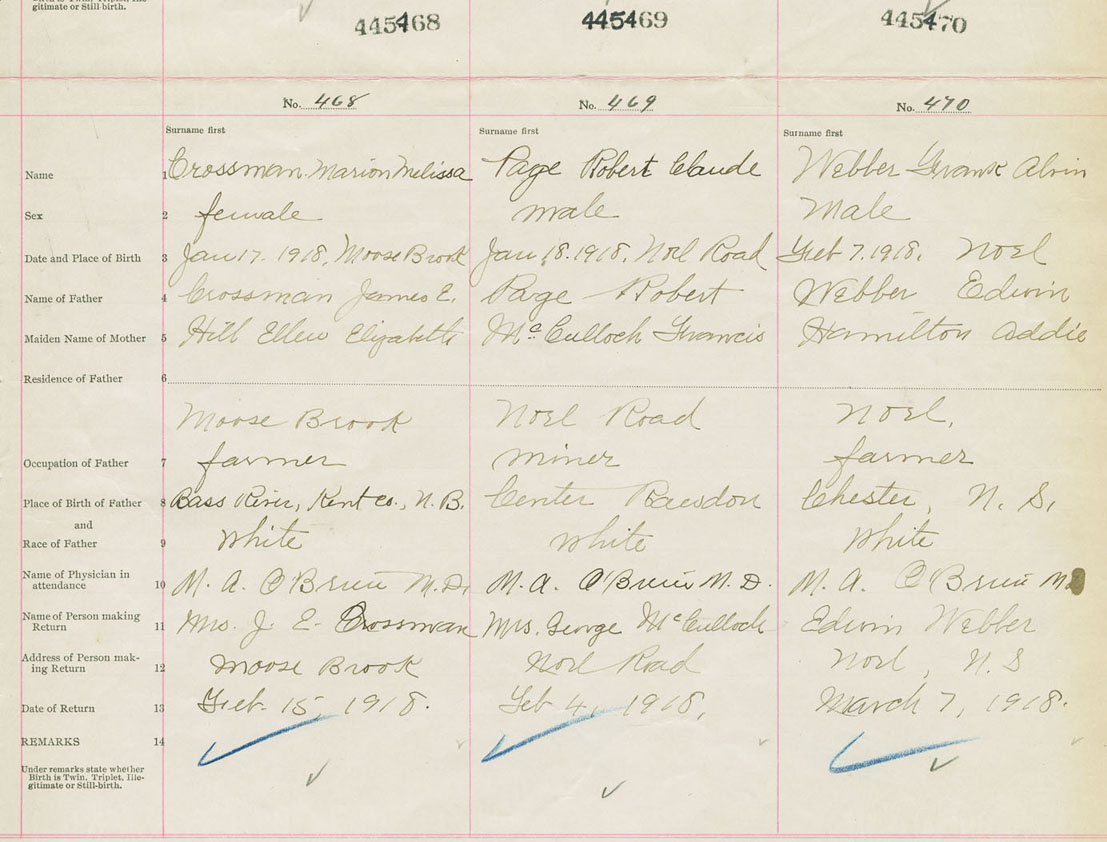 gitimate or Still-birth.
445468 445469 445470
No. 468 No. 469 No. 470
Surname first Surname first Surname first
Name 1 Crossman Marion Melissa Page Robert Claude Webber Frank Alvin
Sex 2 female male Male
Date and Place of Birth 3 Jan 17. 1918, Moose Brook Jan 18. 1918, Noel Road Feb 7. 1918. Noel
Name of Father 4 Crossman James E. Page Robert Webber Edwin
Maiden Name of Mother 5 Hill Ellen Elizabeth McCulloch Francis Hamilton Addie
Residence of Father 6
Moose Brook Noel Road Noel,
Occupation of Father 7 farmer miner farmer
Place of Birth of Father 8 Bass River, Kent Co., N.B. Center Rawdon Chester, N.S.
and
Race of Father 9 White White White
Name of Physician in
attendance 10 M. A. O'Brien M.D. M. A. O'Brien M.D. M. A. O'Brien
Name of Person making
Return 11 Mrs. J. E. Crossman Mrs. George McCulloch Edwin Webber
Address of Person mak-
ing Return 12 Moose Brook Noel Road Noel, N.S
Date of Return 13 Feb. 15, 1918. Feb 4, 1918, March 7, 1918.
REMARKS 14
Under remarks state whether
Birth is Twin, Triplet, Ille-
gitimate or Still-birth.